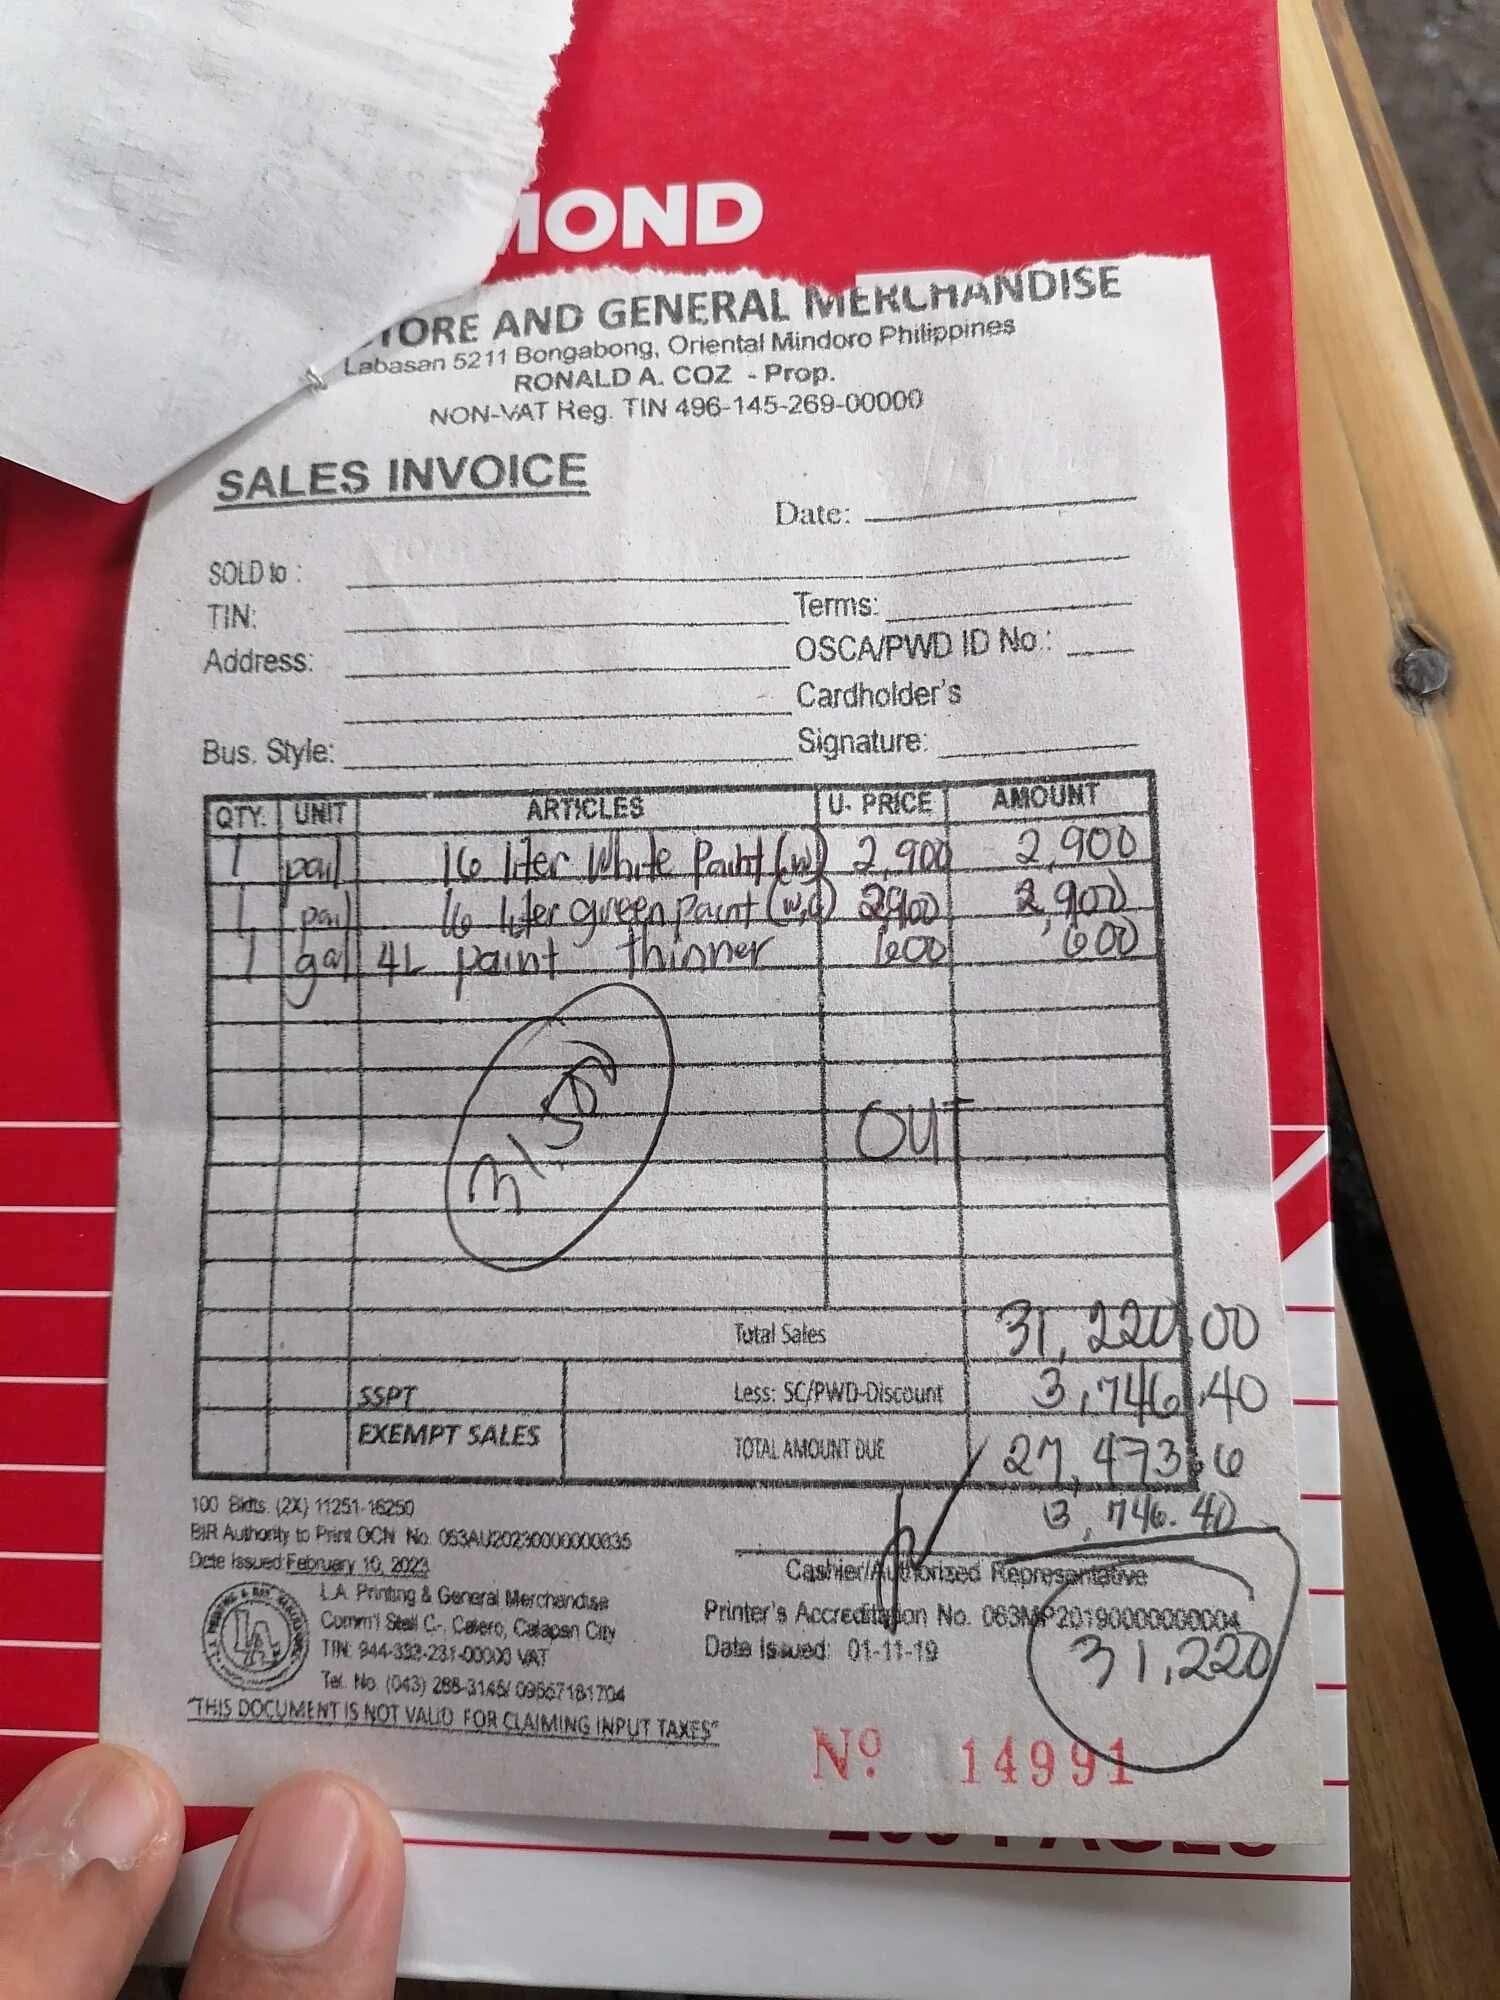 MOND
TORE AND GENERAL MERCHANDISE
Labasan 5211 Bongabong, Oriental Mindoro Philippines
RONALD A. COZ - Prop.
NON-VAT Reg. TIN 496-145-269-00000
SALES INVOICE
Date:
SOLD to :
TIN: Terms:
Address: OSCA/PWD ID No.:
Cardholder's
Bus. Style: Signature:
QTY. UNIT ARTICLES U. PRICE AMOUNT
1 pail 16 liter White Paint (w) 2,900 2,900
1 pail 16 liter green paint 2900 2,900
1 gal 4L paint thinner 600 600
OUT
Total Sales 31,220.00
SSPT Less: SC/PWD-Discount 3,746.40
EXEMPT SALES TOTAL AMOUNT DUE 27,473.6
3,746.40
100 Bklts. (2X) 11251-16250
BIR Authority to Print OCN No. 063AU20230000000635
Date Issued February 10, 2023
Cashier/Authorized Representative
L.A. Printing & General Merchandise
Comm'l Stall C-, Calero, Calapan City
Printer's Accreditation No. 063MP20190000000004
TIN: 944-332-231-00000 VAT
Date Issued: 01-11-19
31,220
Tel. No. (043) 288-3145/ 09567181704
"THIS DOCUMENT IS NOT VALID FOR CLAIMING INPUT TAXES"
No. 14991